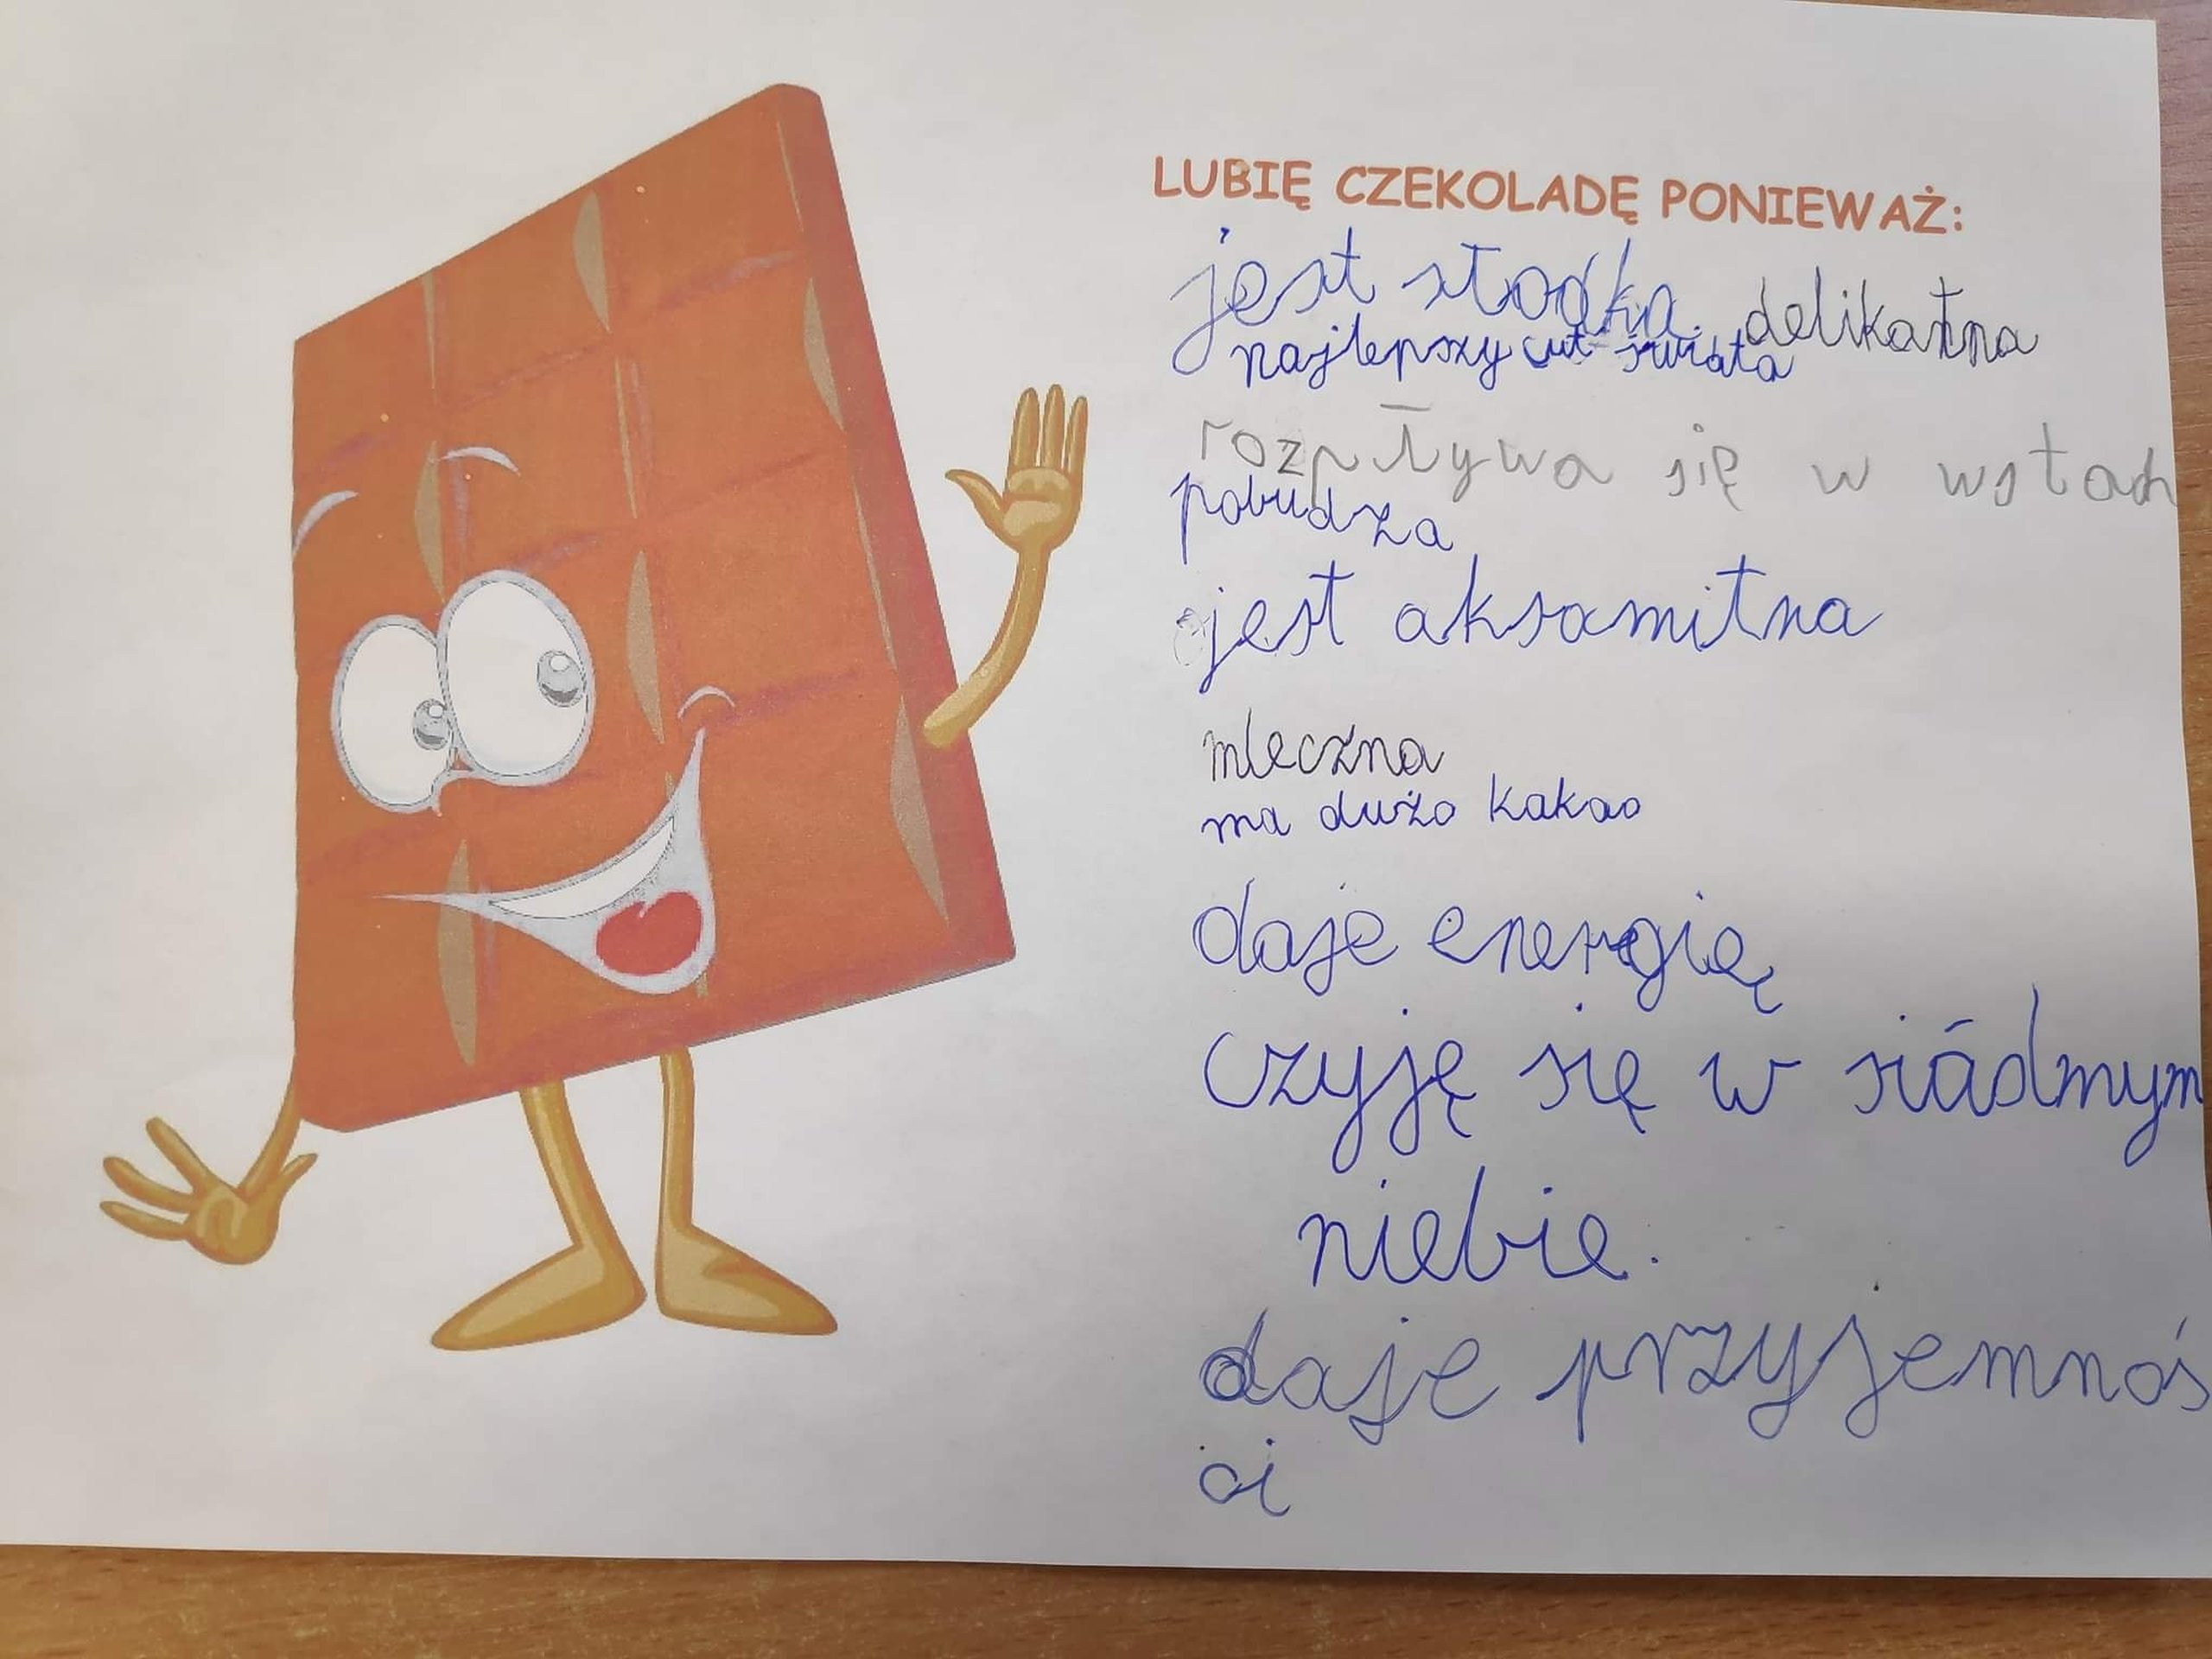 LUBIĘ CZEKOLADĘ PONIEWAŻ:
jest słodka. delikatna
najlepszy cut świata
rozpływa się w wstach
pobudza
jest aksamitna
mleczna
ma dużo kakao
daje energię
czyję się w siádmym
niebie.
daje przyjemnoś
ci